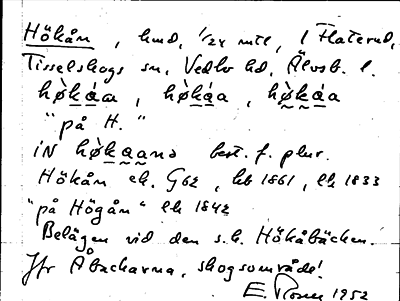 Hökån, hmd, 1/24 mtl, i Flaterud,
Tisselskogs sn, Vedbo hd, Älvsb. l.
hø̀ká̱a, hø̀ká̱a, hø̀ká̱a
"på H."
iN hø̀ka̱anə best. f. plur.
Hökån ek. G62, hb 1861, lk 1833
"på Högån" lk 1842
Belägen vid den s.k. Hökåbäcken.
Jfr Åbackarna, skogsområde!
E. 1952